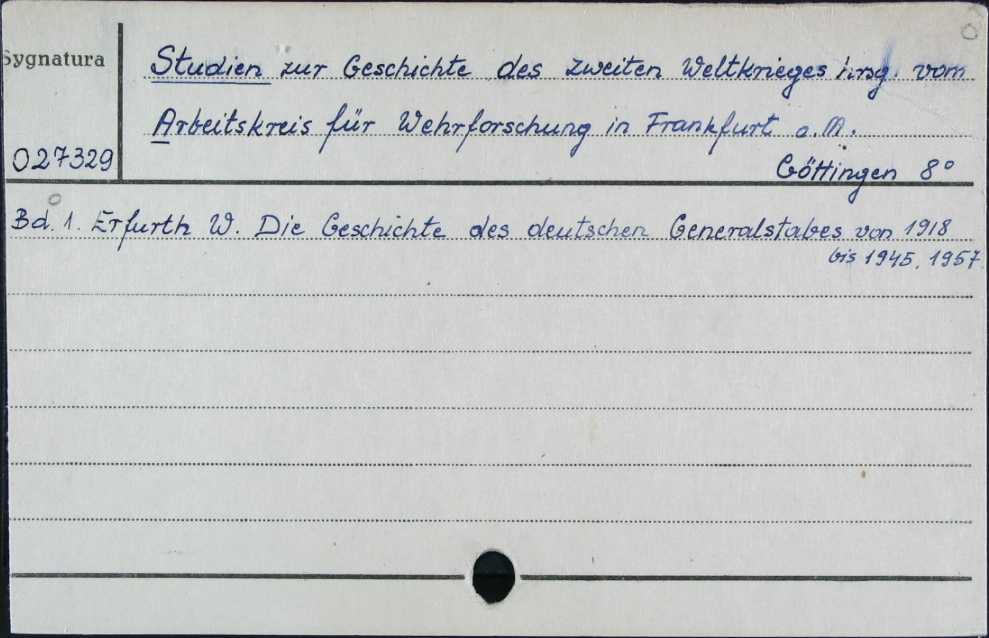 Sygnatura
Studien zur Geschichte des zweiten Weltkrieges hrsg. vom
Arbeitskreis für Wehrforschung in Frankfurt a. M.
027329
Göttingen 8°
Bd. 1. Erfurth W. Die Geschichte des deutschen Generalstabes von 1918
bis 1945. 1957.